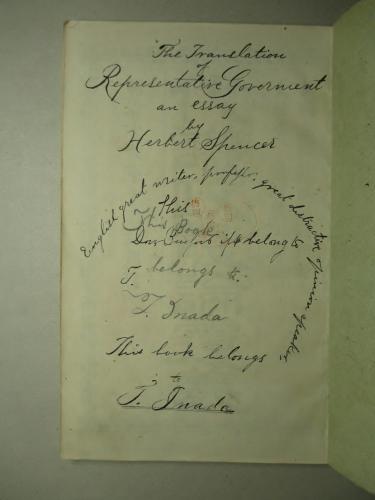 The Translation
of
Representative Goverment
an essay
by
Herbert Spencer
English great writer, profefsor, great distractive opinion speaker,
This
This Book
if belong to
T. belongs to
T. Inada
This book belongs
to
T. Inada